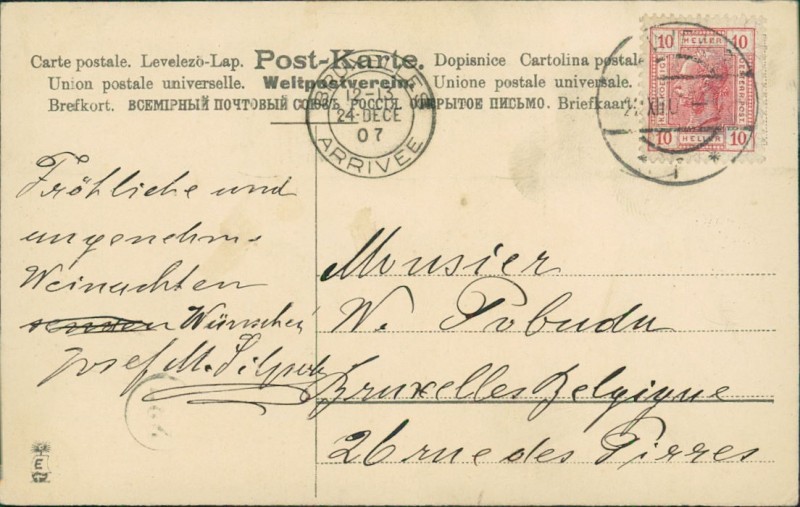 Carte postale. Levelezö-Lap. Post-Karte. Dopisnice Cartolina postale
Union postale universelle. Weltpostverein. Unione postale universale.
Brefkort. ВСЕМІРНЫЙ ПОЧТОВЫЙ СОЮЗЪ РОССІЯ. ОТКРЫТОЕ ПИСЬМО. Briefkaart.
10 HELLER 10
10 10
BRUXELLES
12-13
24 DECE
07
ARRIVÉE
XII
Fröhliche und
ungenehme
Weinachten
Wünschei
Josef M.
Monsier
W. Pobuda
Bruxelles Belgique
26 rue des Pierres
E